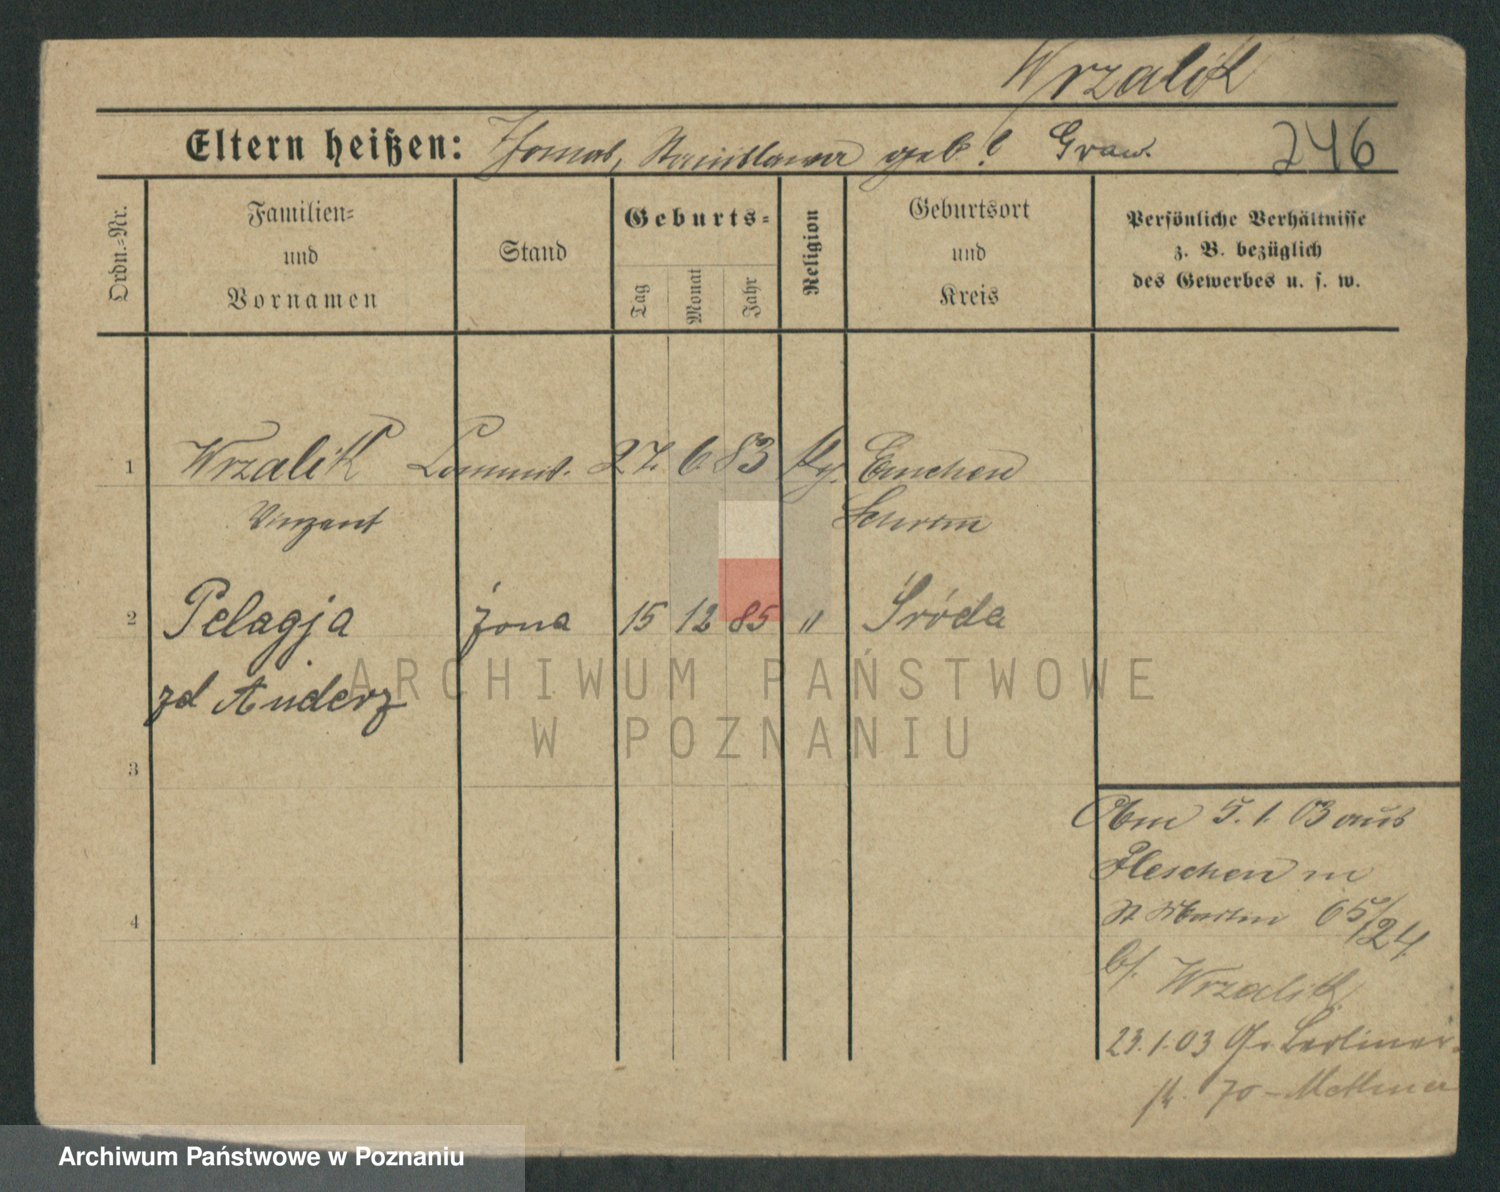 Wrzalik
Eltern heißen: Thomas, Stanislawa geb. Graw.
246
Ordn.-Nr.
Familien-
und
Vornamen
Stand
Geburts-
Tag
Monat
Jahr
Religion
Geburtsort
und
Kreis
Persönliche Verhältnisse
z. B. bezüglich
des Gewerbes u. s. w.
1 Wrzalik Commis. 27. 6. 83 Emchen
Vinzent Schrim
2 Pelagja żona 15 12 85 " Środa
zd Anderz
ARCHIWUM PAŃSTWOWE
W POZNANIU
3
5. 1. 03 aus
Pleschen
St Martin 65/24.
b/. Wrzalik
4
23. 1. 03 Gr. Berliner-
70 -
Archiwum Państwowe w Poznaniu